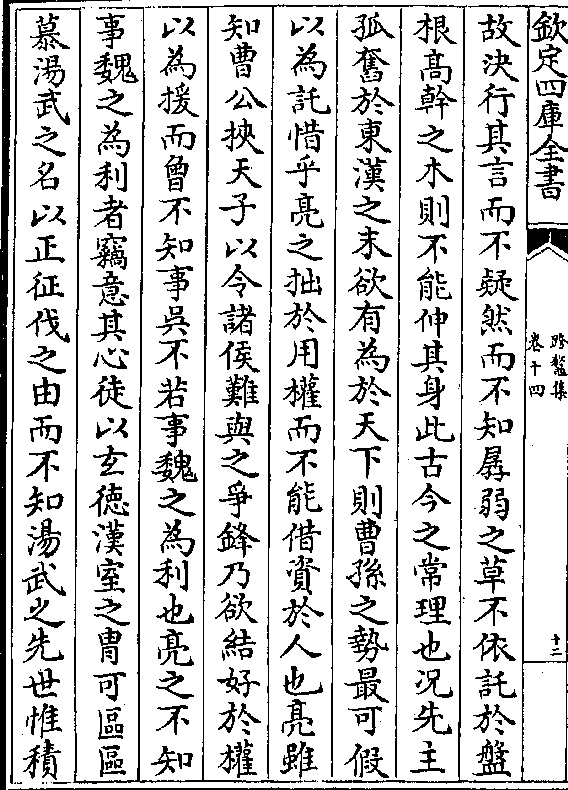 欽定四庫全書
路鼇集
卷十四
十二
故決行其言而不疑然而不知孱弱之草不依託於盤
根髙幹之木則不能伸其身此古今之常理也况先主
孤奮於東漢之末欲有為於天下則曹孫之勢最可假
以為託惜乎亮之拙於用權而不能借資於人也亮雖
知曹公挾天子以令諸侯難與之爭鋒乃欲結好於權
以為援而曾不知事吳不若事魏之為利也亮之不知
事魏之為利者竊意其心徒以玄德漢室之胄可區區
慕湯武之名以正征伐之由而不知湯武之先世惟積